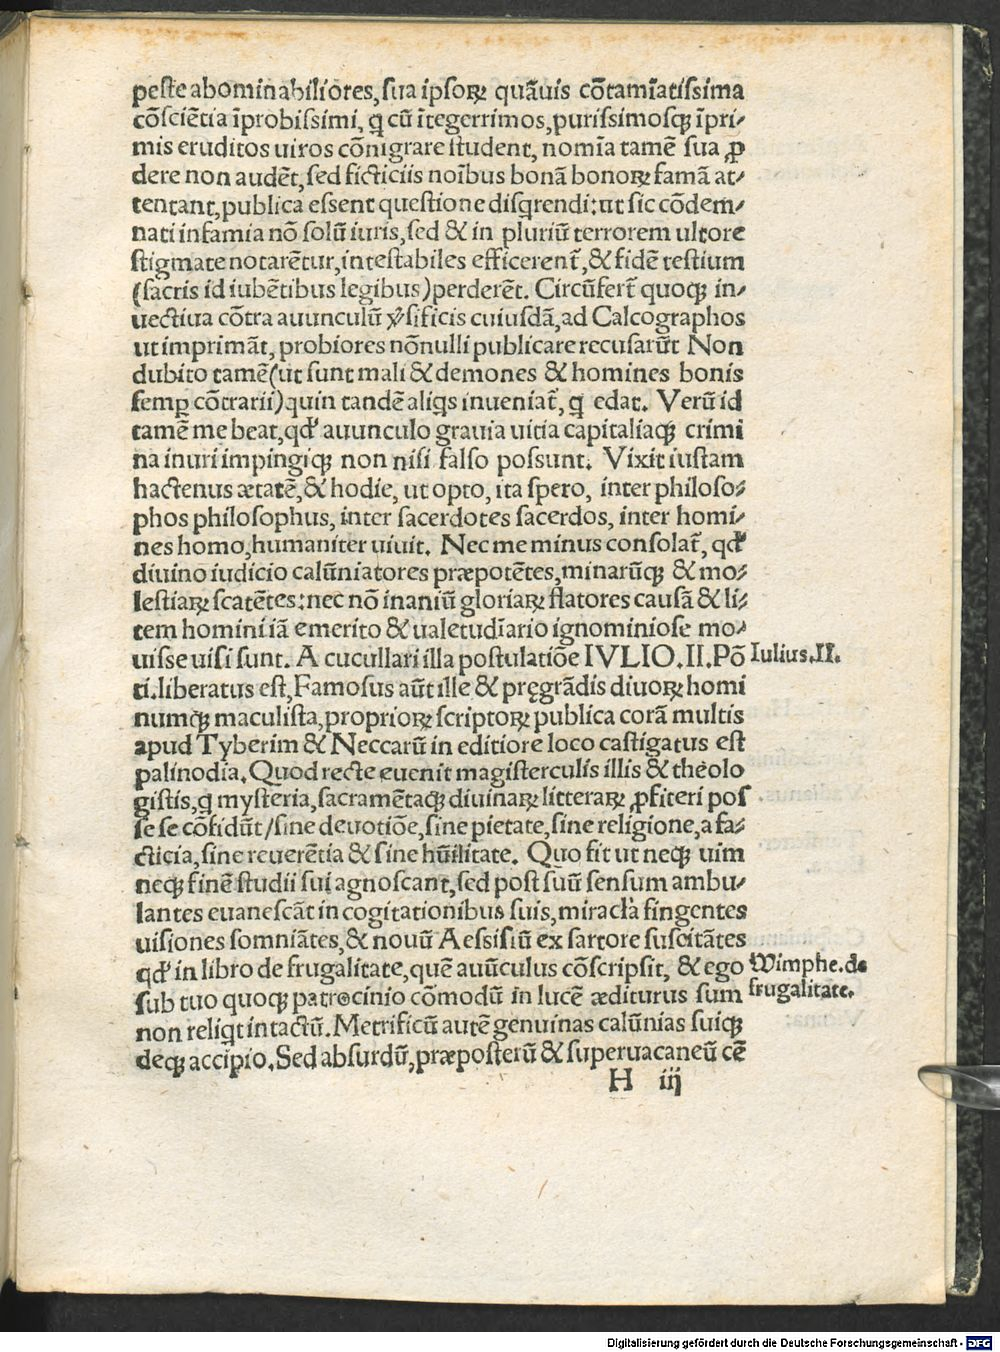 peste abominabiliores, sua ipsoꝝ quāuis cōtamīatissima
cōsciētia īprobissimi, q̃ cū ītegerrimos, purissimosqꝫ īpri-
mis eruditos uiros cōnigrare student, nomīa tamē sua ꝓ
dere non audēt, sed ficticiis noībus bonā bonoꝝ famā at-
tentant, publica essent questione disq̃rendi: ut sic cōdem-
nati infamia nō solū iuris, sed & in pluriū terrorem ultore
stigmate notarētur, intestabiles efficerent̃, & fidē testium
(sacris id iubētibus legibus) perderēt. Circūfert̃ quoqꝫ in-
uectiua cōtra auunculū ỽsificis cuiusdā, ad Calcographos
ut imprimāt, probiores nōnulli publicare recusarūt Non
dubito tamē (ut sunt mali & demones & homines bonis
semꝑ cōtrarii) quin tandē aliq̃s inueniat̃, q̃ edat. Verū id
tamē me beat, qđ auunculo grauia uitia capitaliaqꝫ crimi
na inuri impingiqꝫ non nisi falso possunt. Vixit iustam
hactenus ætatē, & hodie, ut opto, ita spero, inter philoso-
phos philosophus, inter sacerdotes sacerdos, inter homi-
nes homo, humaniter uiuit. Nec me minus consolat̃, qđ
diuino iudicio calūniatores præpotētes, minarūqꝫ & mo-
lestiaꝝ scatētes: nec nō inaniū gloriaꝝ flatores causā & li-
tem homini iā emerito & ualetudīario ignominiose mo-
uisse uisi sunt. A cucullari illa postulatiōe IVLIO. II. Pō
ti. liberatus est, Famosus aūt ille & pręgrādis diuoꝝ homi
numqꝫ maculista, proprioꝝ scriptoꝝ publica corā multis
apud Tyberim & Neccarū in editiore loco castigatus est
palinodia. Quod recte euenit magisterculis illis & theolo
gistis, q̃ mysteria, sacramētaqꝫ diuinaꝝ litteraꝝ ꝓfiteri pos
se se cōfidūt / sine deuotiōe, sine pietate, sine religione, a fa-
cticia, sine reuerētia & sine hūilitate. Quo fit ut neqꝫ uim
neqꝫ finē studii sui agnoscant, sed post suū sensum ambu-
lantes euanescāt in cogitationibus suis, miracła fingentes
uisiones somniātes, & nouū Aessisiū ex sartore suscitātes
qđ in libro de frugalitate, quē auūculus cōscripsit, & ego
sub tuo quoqꝫ patrocinio cōmodū in lucē æditurus sum
non reliq̃t intactū. Metrificū autē genuinas calūnias suiqꝫ
deqꝫ accipio. Sed absurdū, præposterū & superuacaneū cē
H iij
Iulius. II.
Wimphe. de
frugalitate.
Digitalisierung gefördert durch die Deutsche Forschungsgemeinschaft - DFG